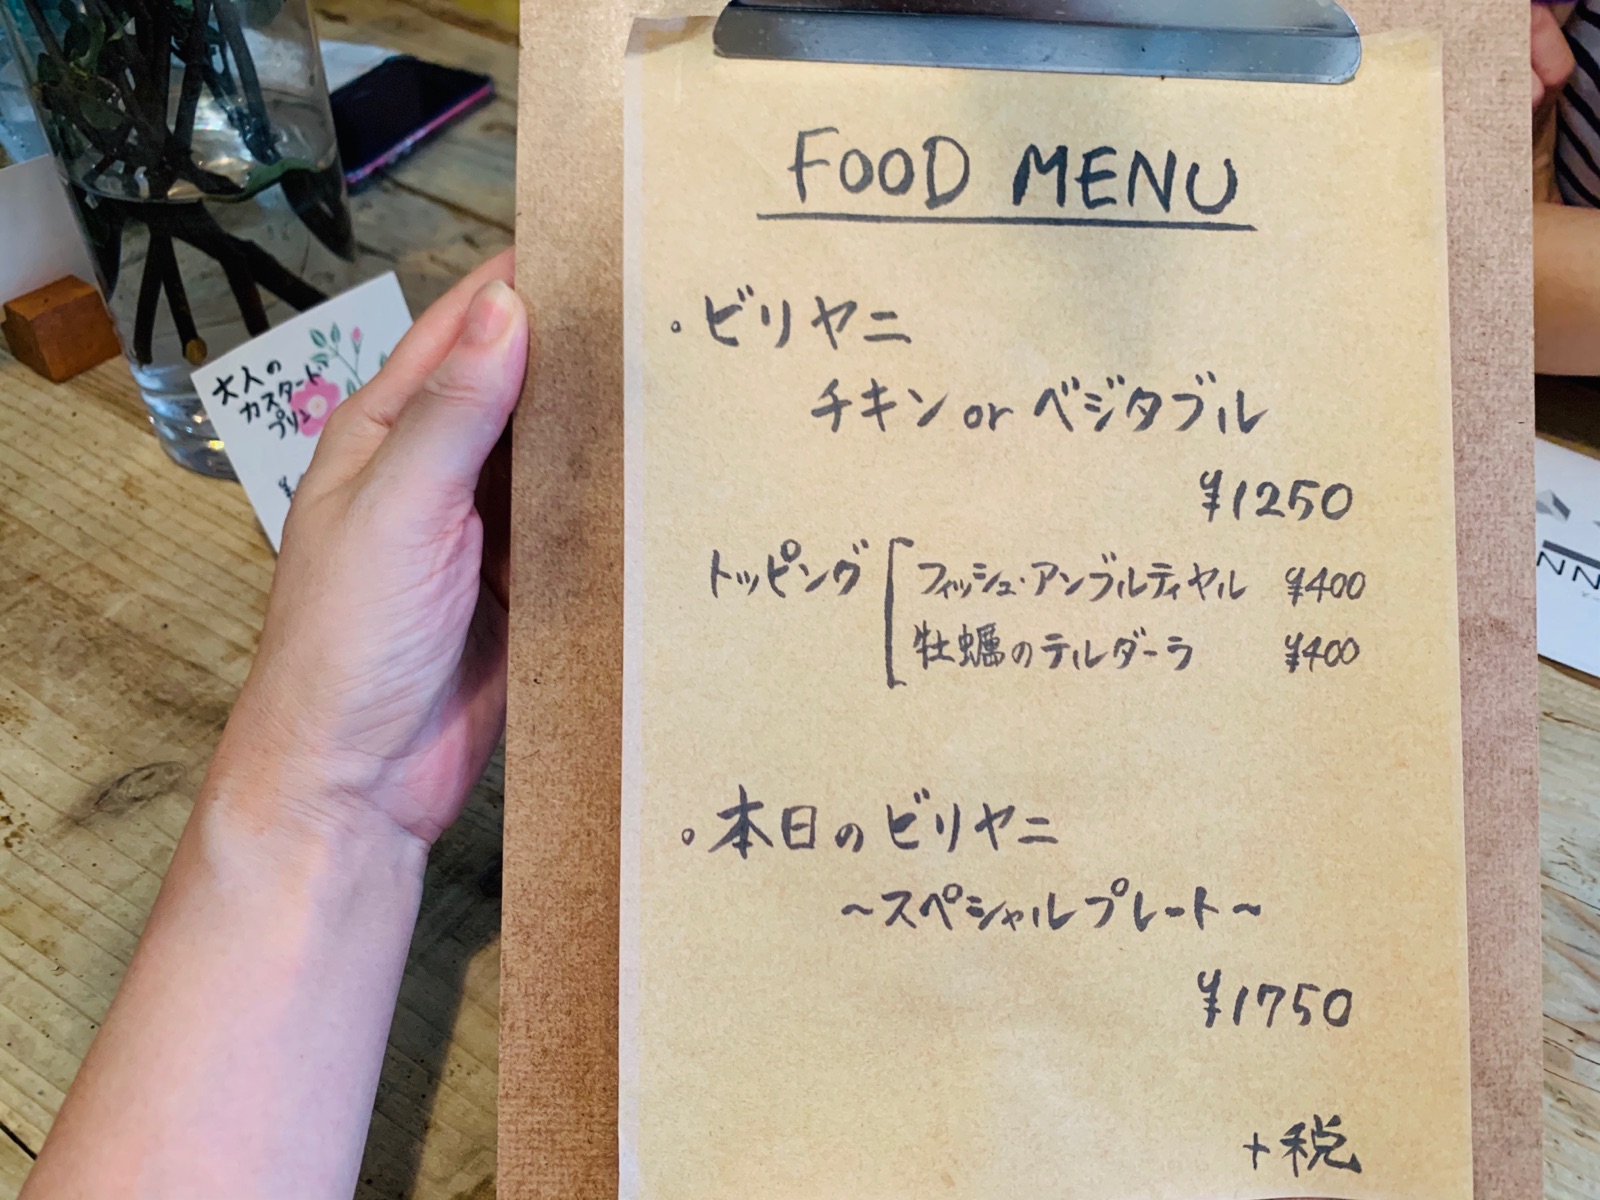 FOOD MENU
。ビリヤニ
チキン or ベジタブル
¥1250
トッピング
フィッシュ・アンブルティヤル ¥400
牡蠣のテルダーラ ¥400
。本日のビリヤニ
~スペシャルプレート~
¥1750
+税
大人の
カスタード
プリン
¥
NN